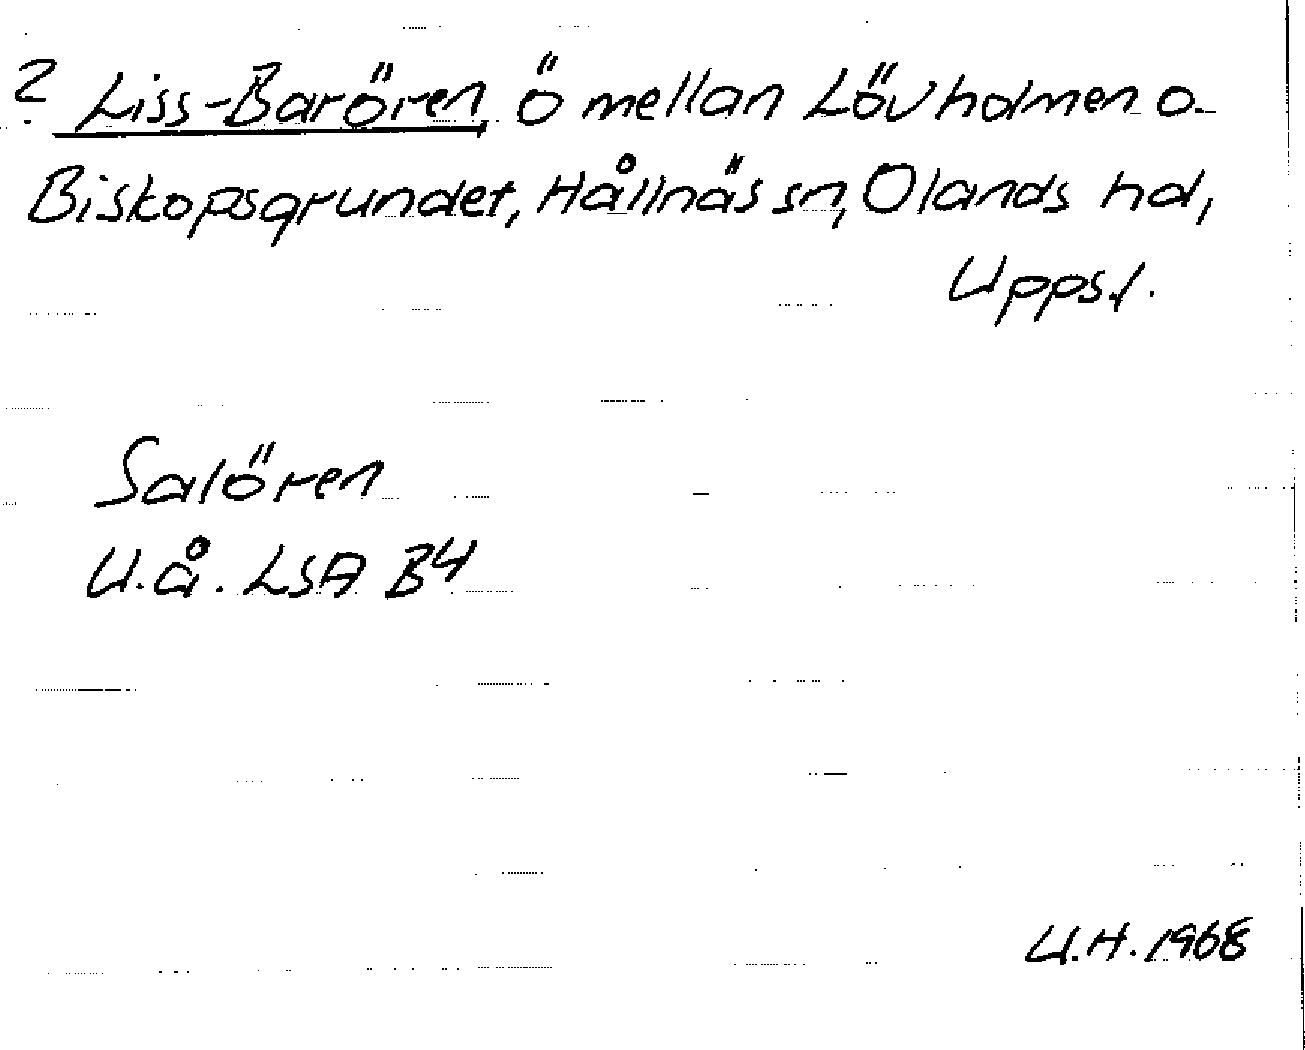 ? Liss-Barören, ö mellan Lövholmen o.
Biskopsgrundet, Hållnäs sn, Olands hd,
Upps. l.
Salören
U.å. LSA B4
U.H. 1968